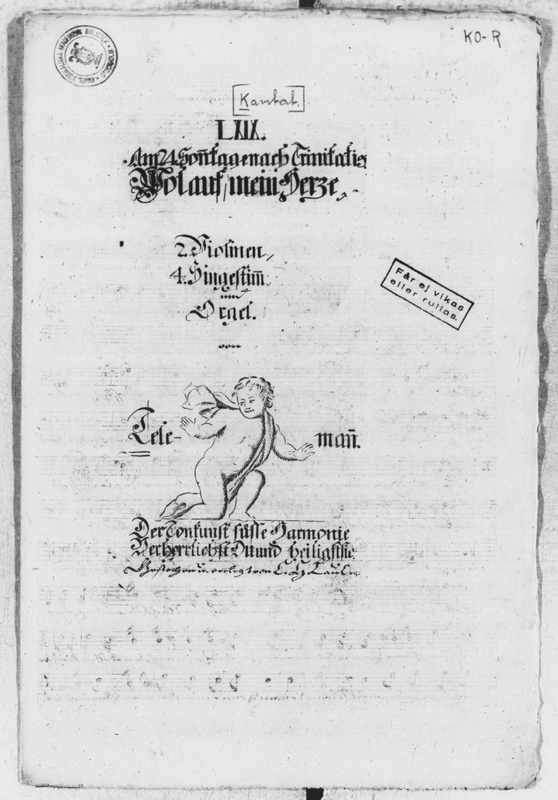 KO-R
Kantat.
LXIX.
Am 24 Sontage nach Trinitatis
Wol auf, mein Herze,
2. Violinen,
4. Singestim̄.
und
Orgel.
von
Tele-
mañ.
Får ej vikas
eller rullas.
Der Tonkunst süsse Harmonie
Verherrlichst Du und heiligst sie.